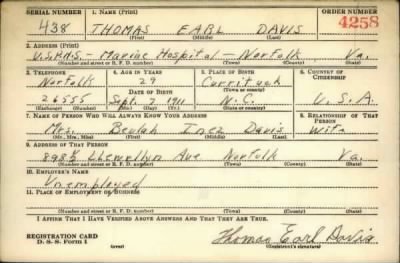 SERIAL NUMBER 1. NAME (Print) ORDER NUMBER
438 THOMAS EARL DAVIS 4258
(First) (Middle) (Last)
2. ADDRESS (Print)
U.S.M.H.S. - Marine Hospital - Norfolk Va.
(Number and street or R. F. D. number) (Town) (County) (State)
3. TELEPHONE 4. AGE IN YEARS 5. PLACE OF BIRTH 6. COUNTRY OF CITIZENSHIP
Norfolk 29 Currituck
DATE OF BIRTH (Town or county)
26555 Sept. 1911 N.C. U.S.A.
(Exchange) (Number) (Mo.) (Day) (Yr.) (State or country)
7. NAME OF PERSON WHO WILL ALWAYS KNOW YOUR ADDRESS 8. RELATIONSHIP OF THAT PERSON
Mrs. Beulah Inez Davis Wife
(Mr., Mrs., Miss) (First) (Middle) (Last)
9. ADDRESS OF THAT PERSON
898½ Llewellyn Ave Norfolk Va.
(Number and street or R. F. D. number) (Town) (County) (State)
10. EMPLOYER'S NAME
Unemployed
11. PLACE OF EMPLOYMENT OR BUSINESS
(Number and street or R. F. D. number) (Town) (County) (State)
I AFFIRM THAT I HAVE VERIFIED ABOVE ANSWERS AND THAT THEY ARE TRUE.
REGISTRATION CARD Thomas Earl Davis
D. S. S. Form 1 (over) (Registrant's signature)